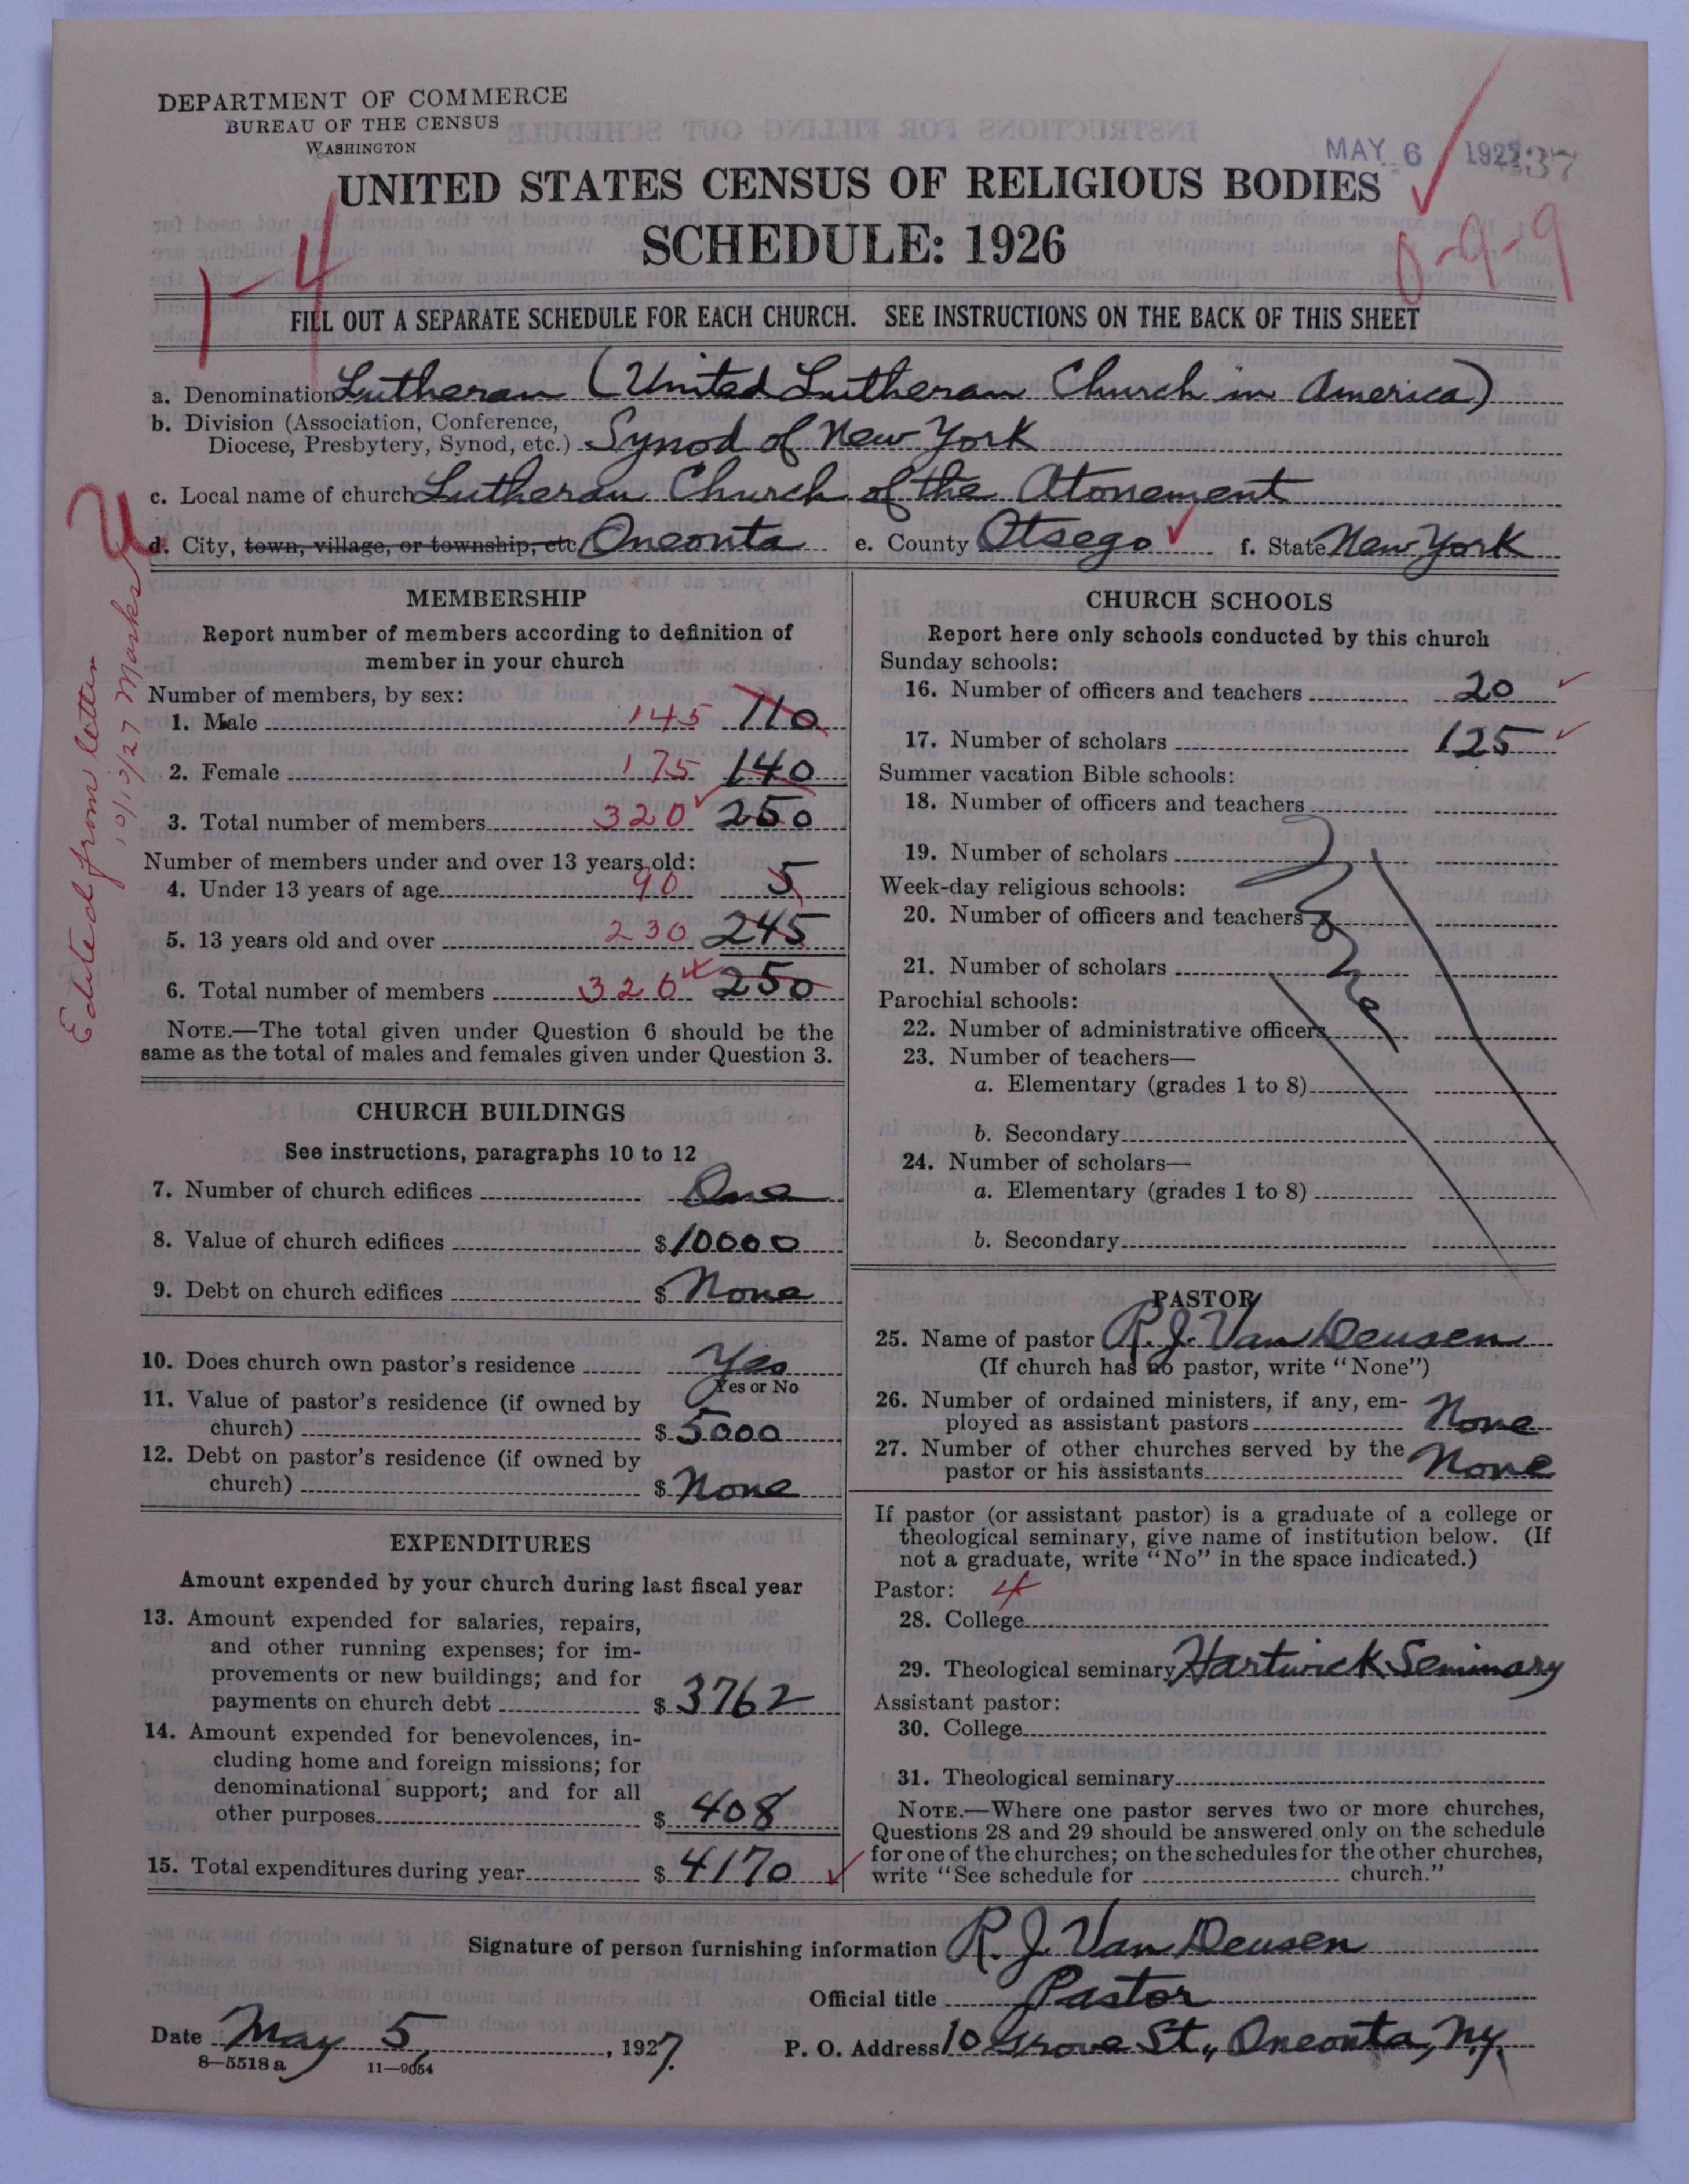 DEPARTMENT OF COMMERCE
BUREAU OF THE CENSUS
WASHINGTON
MAY 6 192
UNITED STATES CENSUS OF RELIGIOUS BODIES
SCHEDULE: 1926
1-4
0-9-9
FILL OUT A SEPARATE SCHEDULE FOR EACH CHURCH. SEE INSTRUCTIONS ON THE BACK OF THIS SHEET
a. Denomination Lutheran (United Lutheran Church in America)
b. Division (Association, Conference,
Diocese, Presbytery, Synod, etc.) Synod of New York
c. Local name of church Lutheran Church of the Atonement
d. City, town, village, or township, etc. Oneonta e. County Otsego f. State New York
Edited from letter
10/10/27 Marks
MEMBERSHIP
Report number of members according to definition of
member in your church
Number of members, by sex:
1. Male 145 110
2. Female 175 140
3. Total number of members 320 250
Number of members under and over 13 years old:
4. Under 13 years of age 90 5
5. 13 years old and over 230 245
6. Total number of members 320 250
NOTE.—The total given under Question 6 should be the
same as the total of males and females given under Question 3.
CHURCH BUILDINGS
See instructions, paragraphs 10 to 12
7. Number of church edifices One
8. Value of church edifices $10000
9. Debt on church edifices $ None
10. Does church own pastor's residence Yes
Yes or No
11. Value of pastor's residence (if owned by
church) $ 5000
12. Debt on pastor's residence (if owned by
church) $ None
EXPENDITURES
Amount expended by your church during last fiscal year
13. Amount expended for salaries, repairs,
and other running expenses; for im-
provements or new buildings; and for
payments on church debt $ 3762
14. Amount expended for benevolences, in-
cluding home and foreign missions; for
denominational support; and for all
other purposes $ 408
15. Total expenditures during year $ 4170
CHURCH SCHOOLS
Report here only schools conducted by this church
Sunday schools:
16. Number of officers and teachers 20
17. Number of scholars 125
Summer vacation Bible schools:
18. Number of officers and teachers
19. Number of scholars
Week-day religious schools:
20. Number of officers and teachers
21. Number of scholars
Parochial schools:
22. Number of administrative officers
23. Number of teachers—
a. Elementary (grades 1 to 8)
b. Secondary
24. Number of scholars—
a. Elementary (grades 1 to 8)
b. Secondary
PASTOR
25. Name of pastor R. J. Van Deusen
(If church has no pastor, write "None")
26. Number of ordained ministers, if any, em-
ployed as assistant pastors None
27. Number of other churches served by the
pastor or his assistants None
If pastor (or assistant pastor) is a graduate of a college or
theological seminary, give name of institution below. (If
not a graduate, write "No" in the space indicated.)
Pastor: 4
28. College
29. Theological seminary Hartwick Seminary
Assistant pastor:
30. College
31. Theological seminary
NOTE.—Where one pastor serves two or more churches,
Questions 28 and 29 should be answered only on the schedule
for one of the churches; on the schedules for the other churches,
write "See schedule for church."
Signature of person furnishing information R. J. Van Deusen
Official title Pastor
Date May 5, 1927. P. O. Address 10 Grove St., Oneonta, N.Y.
8—5518a 11—9054